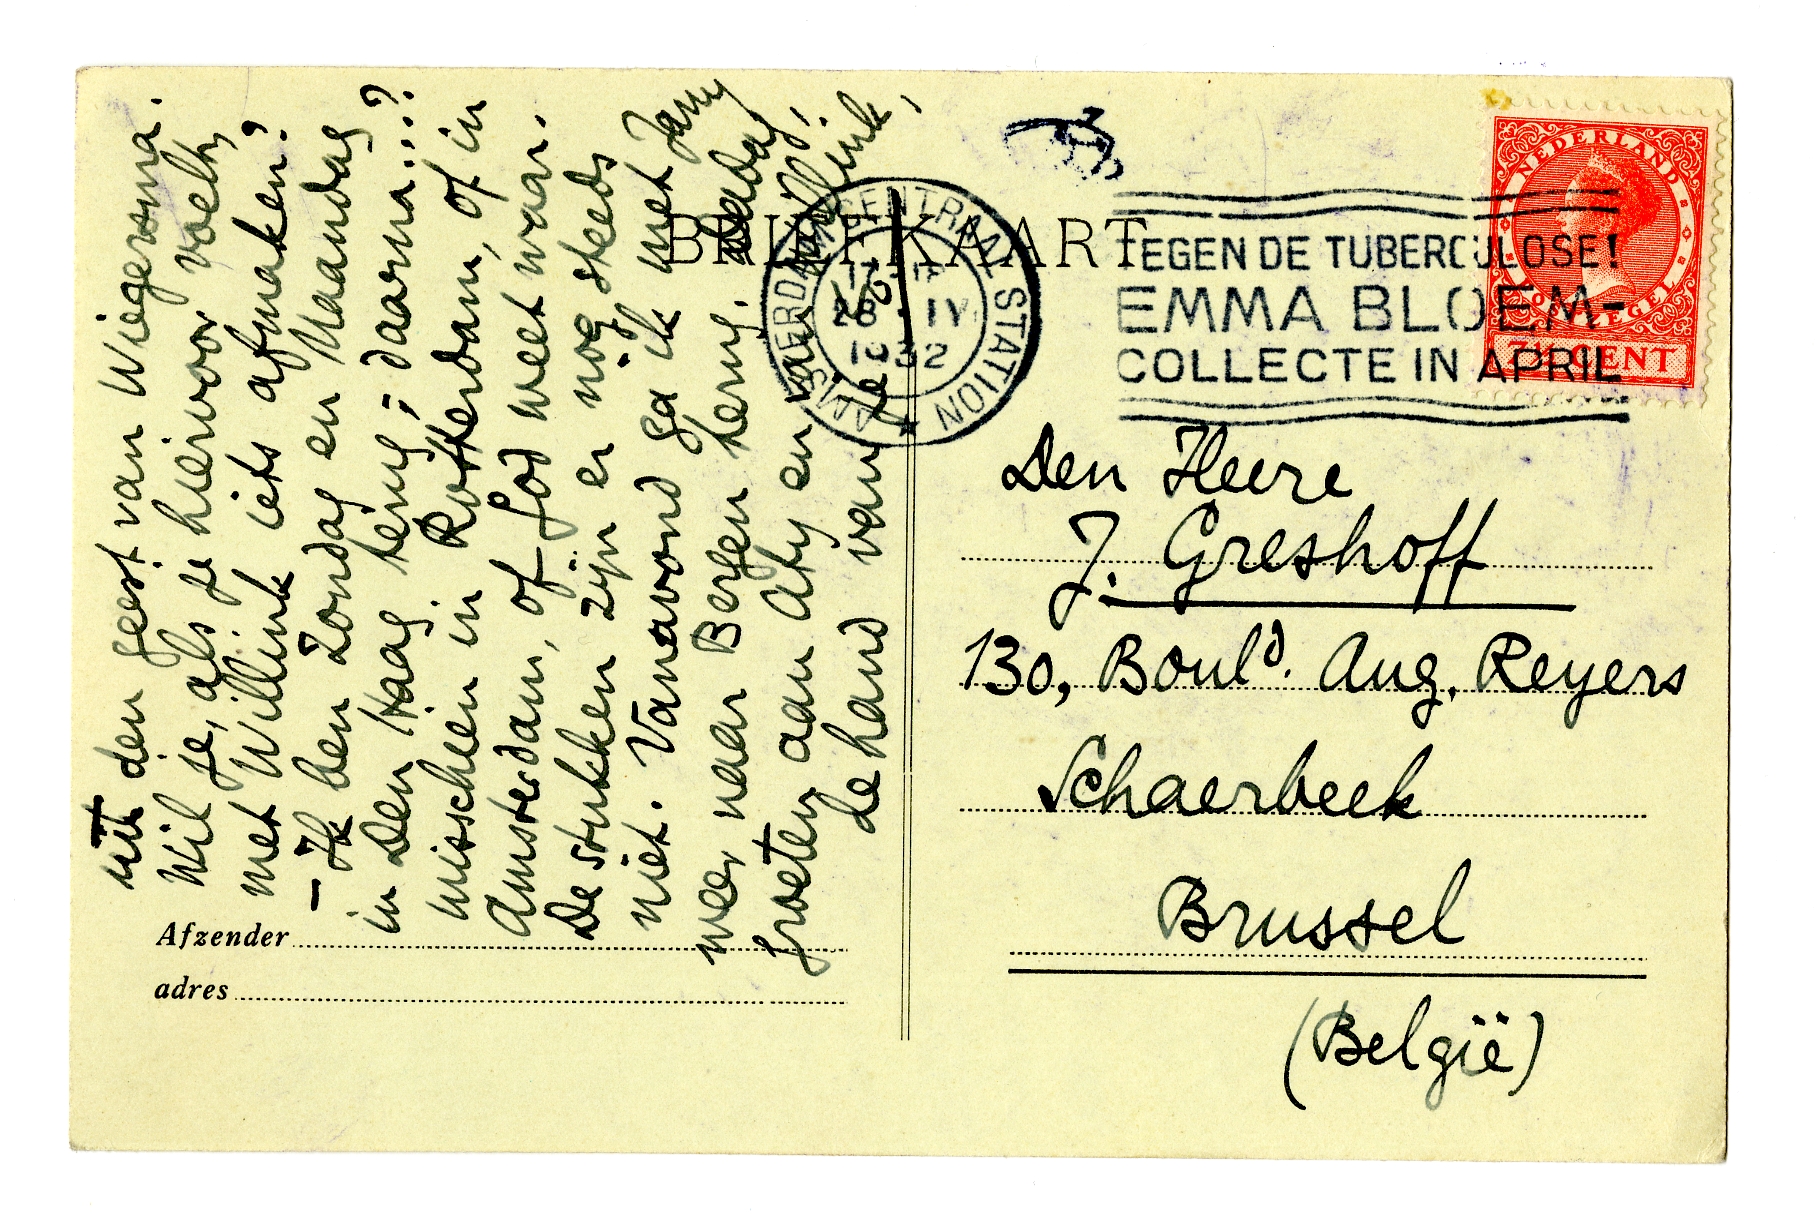 uit den geest van Wiegersma.
Wil je, als je hiervoor voelt,
met Willink iets afmaken?
— Ik ben Zondag en Maandag
in Den Haag terug; daarna....?
misschien in Rotterdam, of in
Amsterdam, of God weet waar.
De stukken zijn er nog steeds
niet. Vanavond ga ik met Jany
weer naar Bergen terug. Dadag,
groeten aan Aty en van Willink,
de hand van je
BRIEFKAART
AMSTERDAM CENTRAAL STATION
28 IV
1932
TEGEN DE TUBERCULOSE!
EMMA BLOEM-
COLLECTE IN APRIL
NEDERLAND
POSTZEGEL
7½ CENT
Den Heere
J. Greshoff
130, Boul^d. Aug. Reyers
Schaerbeek
Brussel
(België)
Afzender
adres